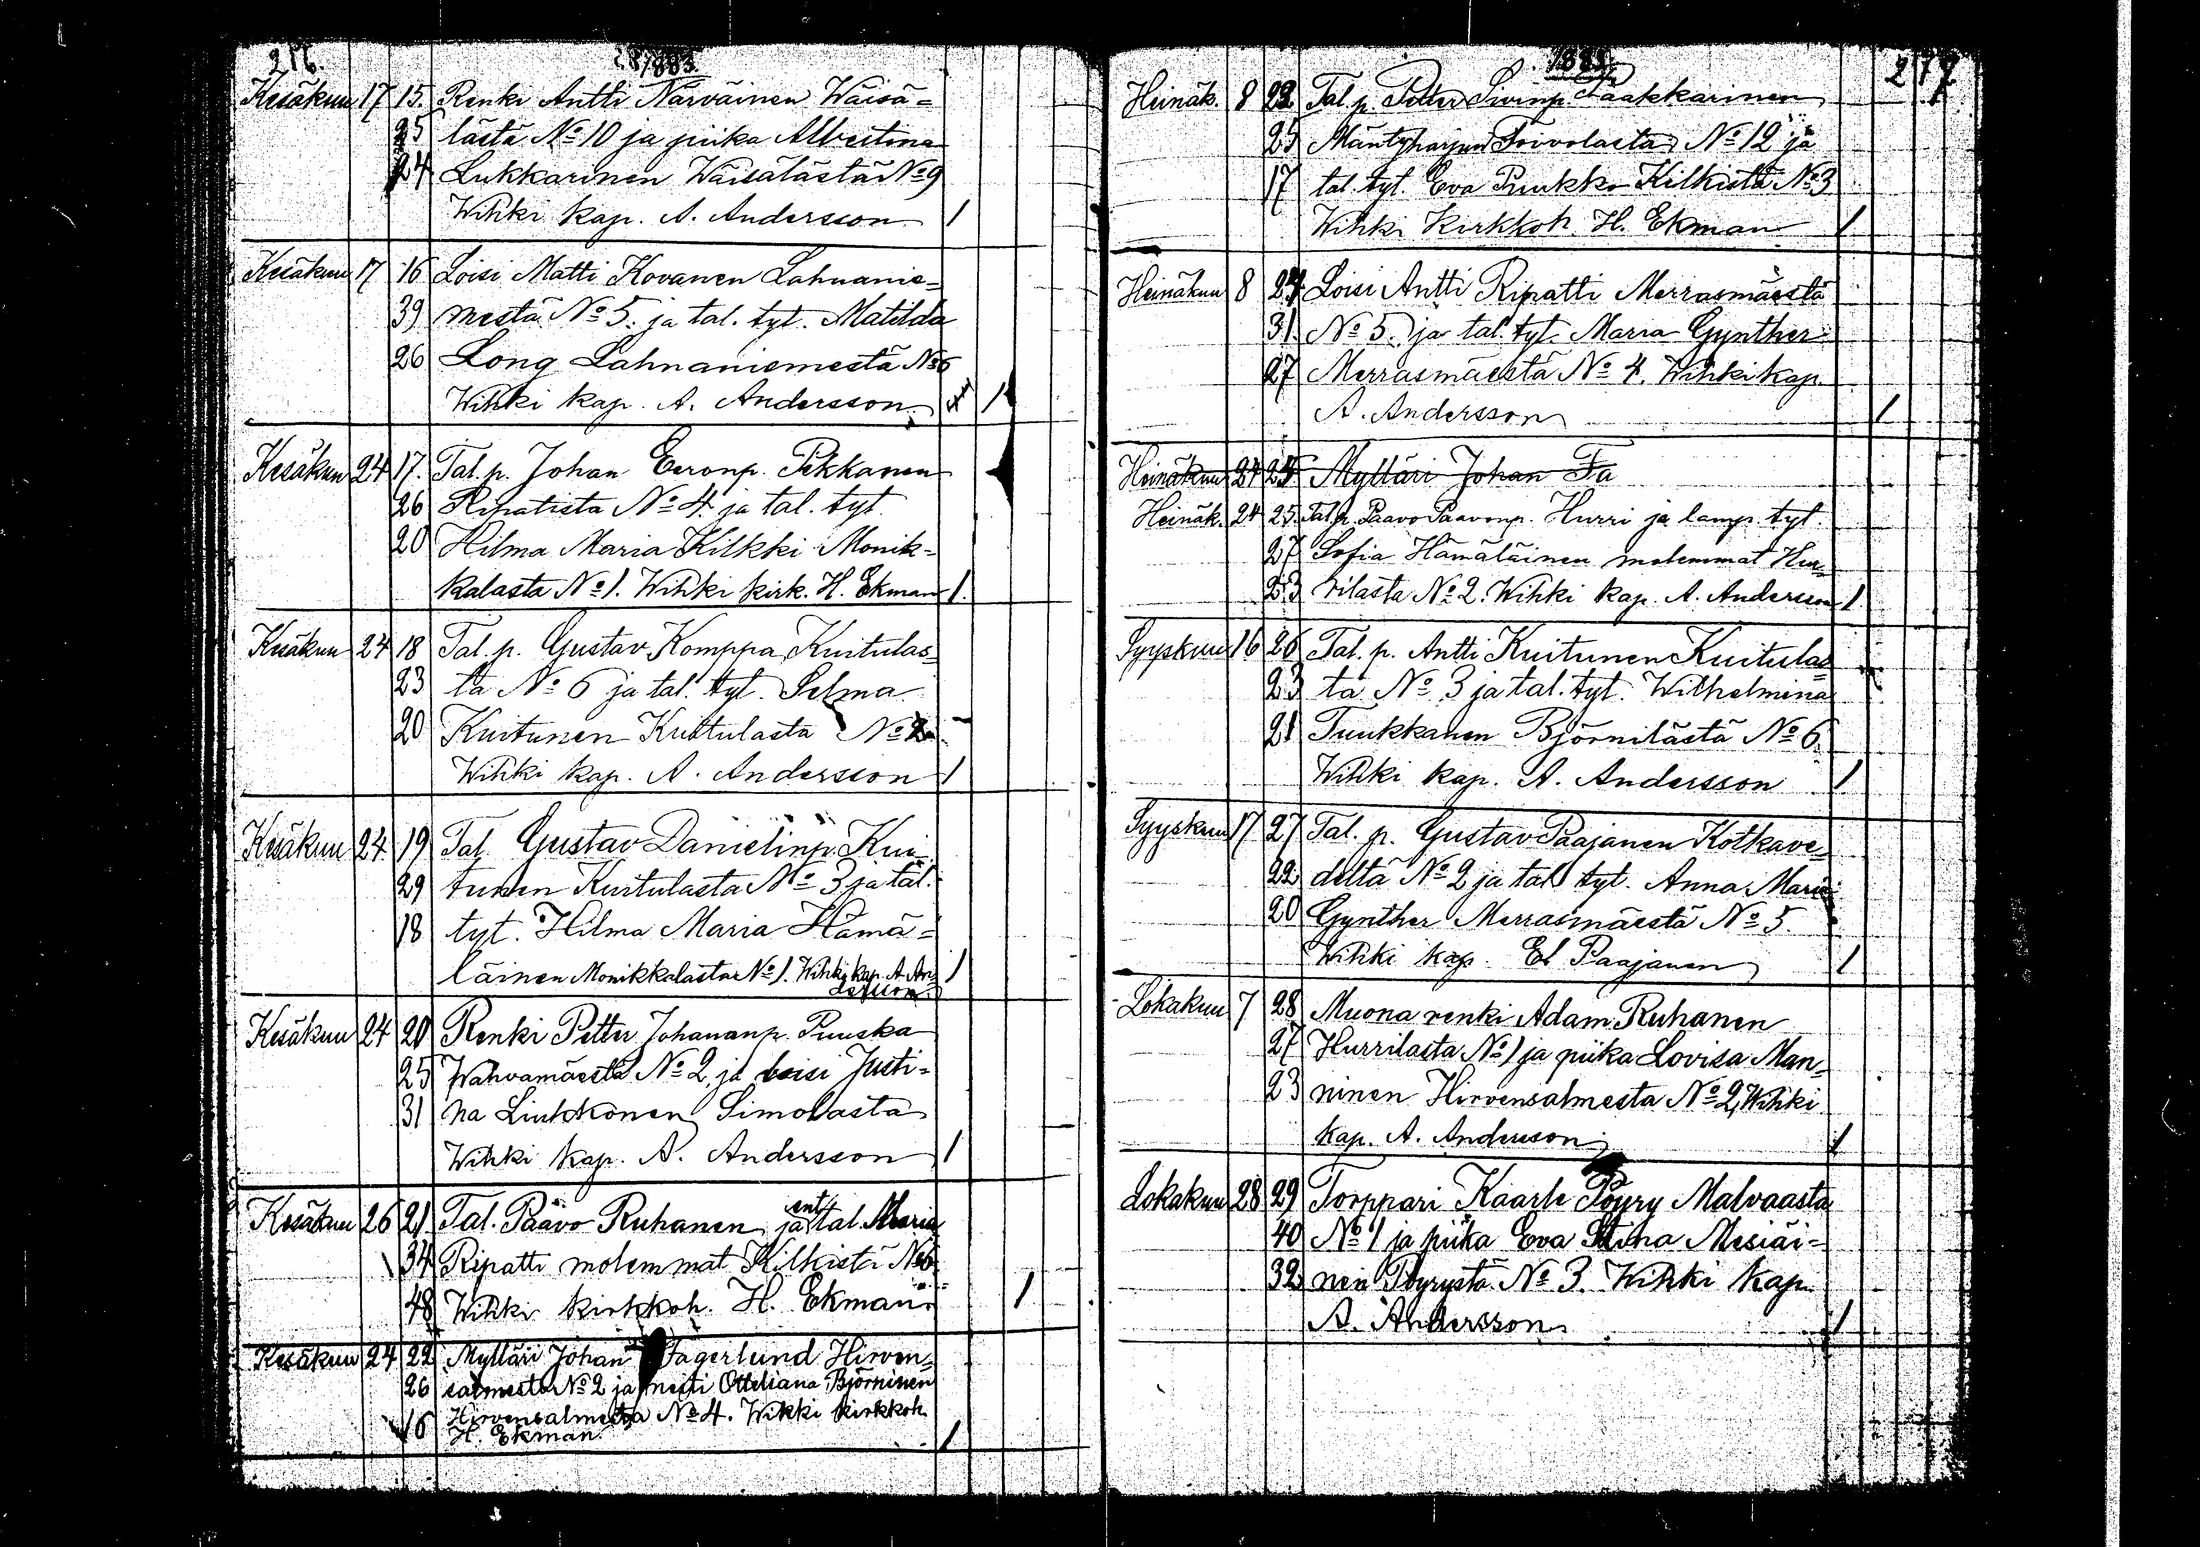 216.
1883
Kesäkuu 17 15. Renki Antti Närväinen Wäisä=
25 lästä No 10 ja piika Albertina
24 Lukkarinen Wäisälästä No 9
Wihki kap. A. Andersson 1
Kesäkuu 17 16 Loisi Matti Kovanen Lahnanie=
39 mestä No 5. ja tal. tyt. Matilda
26 Long Lahnaniemestä No 6
Wihki kap. A. Andersson 1
Kesäkuu 24 17. Tal. p. Johan Eeronp. Pekkanen
26 Ripatista No 4 ja tal. tyt
20 Hilma Maria Kilkki Monik=
kalasta No 1. Wihki kirk. H. Ekman 1.
Kesäkuu 24 18 Tal. p. Gustav Komppa Kuitulas=
23 ta No 6 ja tal. tyt. Selma
20 Kuitunen Kuitulasta No 2
Wihki kap. A. Andersson 1
Kesäkuu 24 19 Tal. Gustav Danielinp. Kui=
29 tunen Kuitulasta No 3 ja tal.
18 tyt. Hilma Maria Hämä=
läinen Monikkalasta No 1. Wihki kap. A. An= 1
dersson.
Kesäkuu 24 20 Renki Petter Johananp. Puuska
25 Wahvamäestä No 2 ja loisi Justi=
31 na Liukkonen Simolasta
Wihki kap. A. Andersson 1
Kesäkuu 26 21 Tal. Paavo Ruhanen ja ent. tal. Maria
34 Ripatti molemmat Kilkistä No 6
48 Wihki kirkkoh. H. Ekman. 1
Kesäkuu 24 22 Mylläri Johan Fagerlund Hirven=
26 salmesta No 2 ja neiti Otteliana Björninen
16 Hirvensalmesta No 4. Wihki kirkkoh
H. Ekman. 1
1883
217
Heinäk. 8 23 Tal. p. Petter Paakkarinen
25 Mäntyharjun Toivolasta No 12 ja
17 tal. tyt. Eva Puukko Kilkistä No 3
Wihki Kirkkoh. H. Ekman 1
Heinäkuu 8 24 Loisi Antti Ripatti Merrasmäestä
31. No 5. ja tal. tyt. Maria Gynther
27 Merrasmäestä No 4. Wihki kap.
A. Andersson 1
Heinäkuu 24 25 Mylläri Johan Fa
Heinäk. 24 25. Tal. p. Paavo Paavonp. Hurri ja lamp. tyt.
27 Sofia Hämäläinen molemmat Hur=
23 rilasta No 2. Wihki kap. A. Andersson 1
Syyskuu 16 26 Tal. p. Antti Kuitunen Kuitulas=
23 ta No 3 ja tal. tyt. Wilhelmina
21 Tuukkanen Björnilästä No 6
Wihki kap. A. Andersson 1
Syyskuu 17 27 Tal. p. Gustav Paajanen Kotkave=
22 deltä No 2 ja tal tyt. Anna Maria
20 Gynther Merrasmäestä No 5.
Wihki kap. Ed Paajanen 1
Lokakuu 7 28 Muona renki Adam Ruhanen
27 Hurrilasta No 1 ja piika Lovisa Man=
23 ninen Hirvensalmesta No 2, Wihki
kap. A. Andersson 1
Lokakuu 28 29 Torppari Kaarle Pöyry Malvaasta
40 No 1 ja piika Eva Stina Mesiäi=
32 nen Pöyrystä No 3. Wihki kap.
A. Andersson. 1